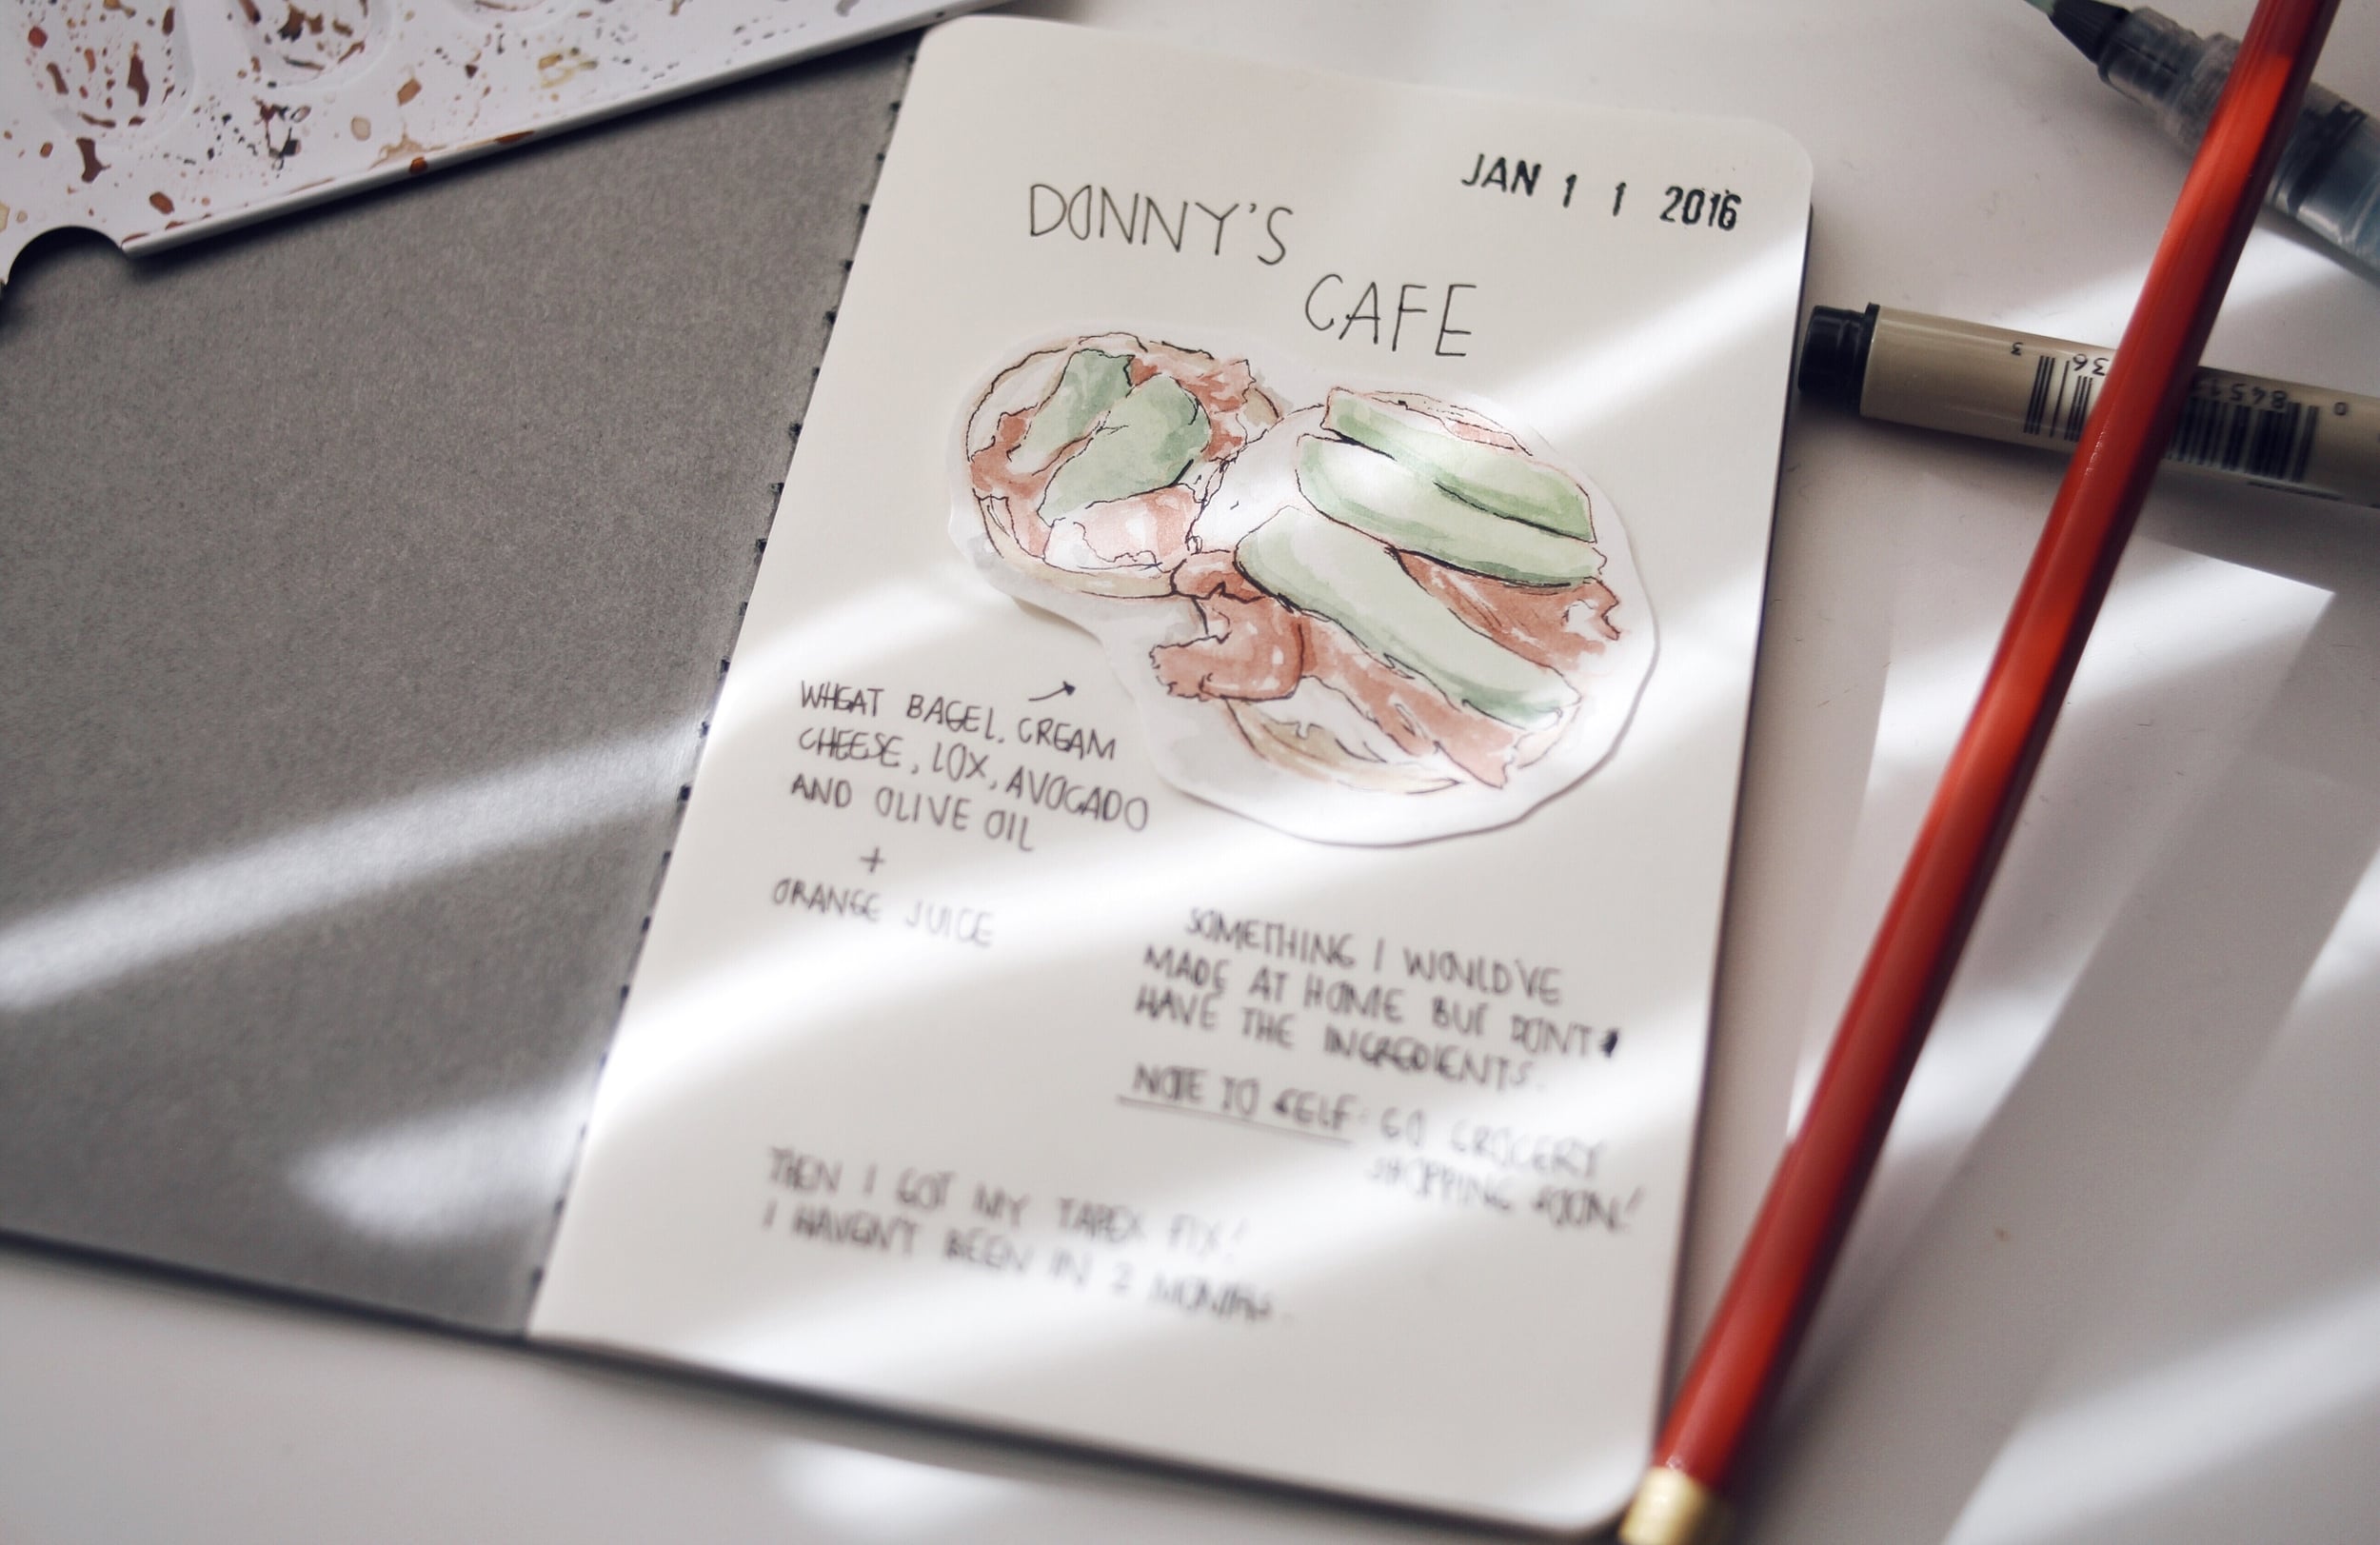 JAN 1 1 2016
DONNY'S
CAFE
WHEAT BAGEL. CREAM
CHEESE, LOX, AVOCADO
AND OLIVE OIL
+
ORANGE JUICE
SOMETHING I WOULD'VE
MADE AT HOME BUT DON'T
HAVE THE INGREDIENTS.
NOTE TO SELF: GO GROCERY
SHOPPING SOON!
THEN I GOT MY TAPEX FIX!
I HAVEN'T BEEN IN 2 MONTHS.